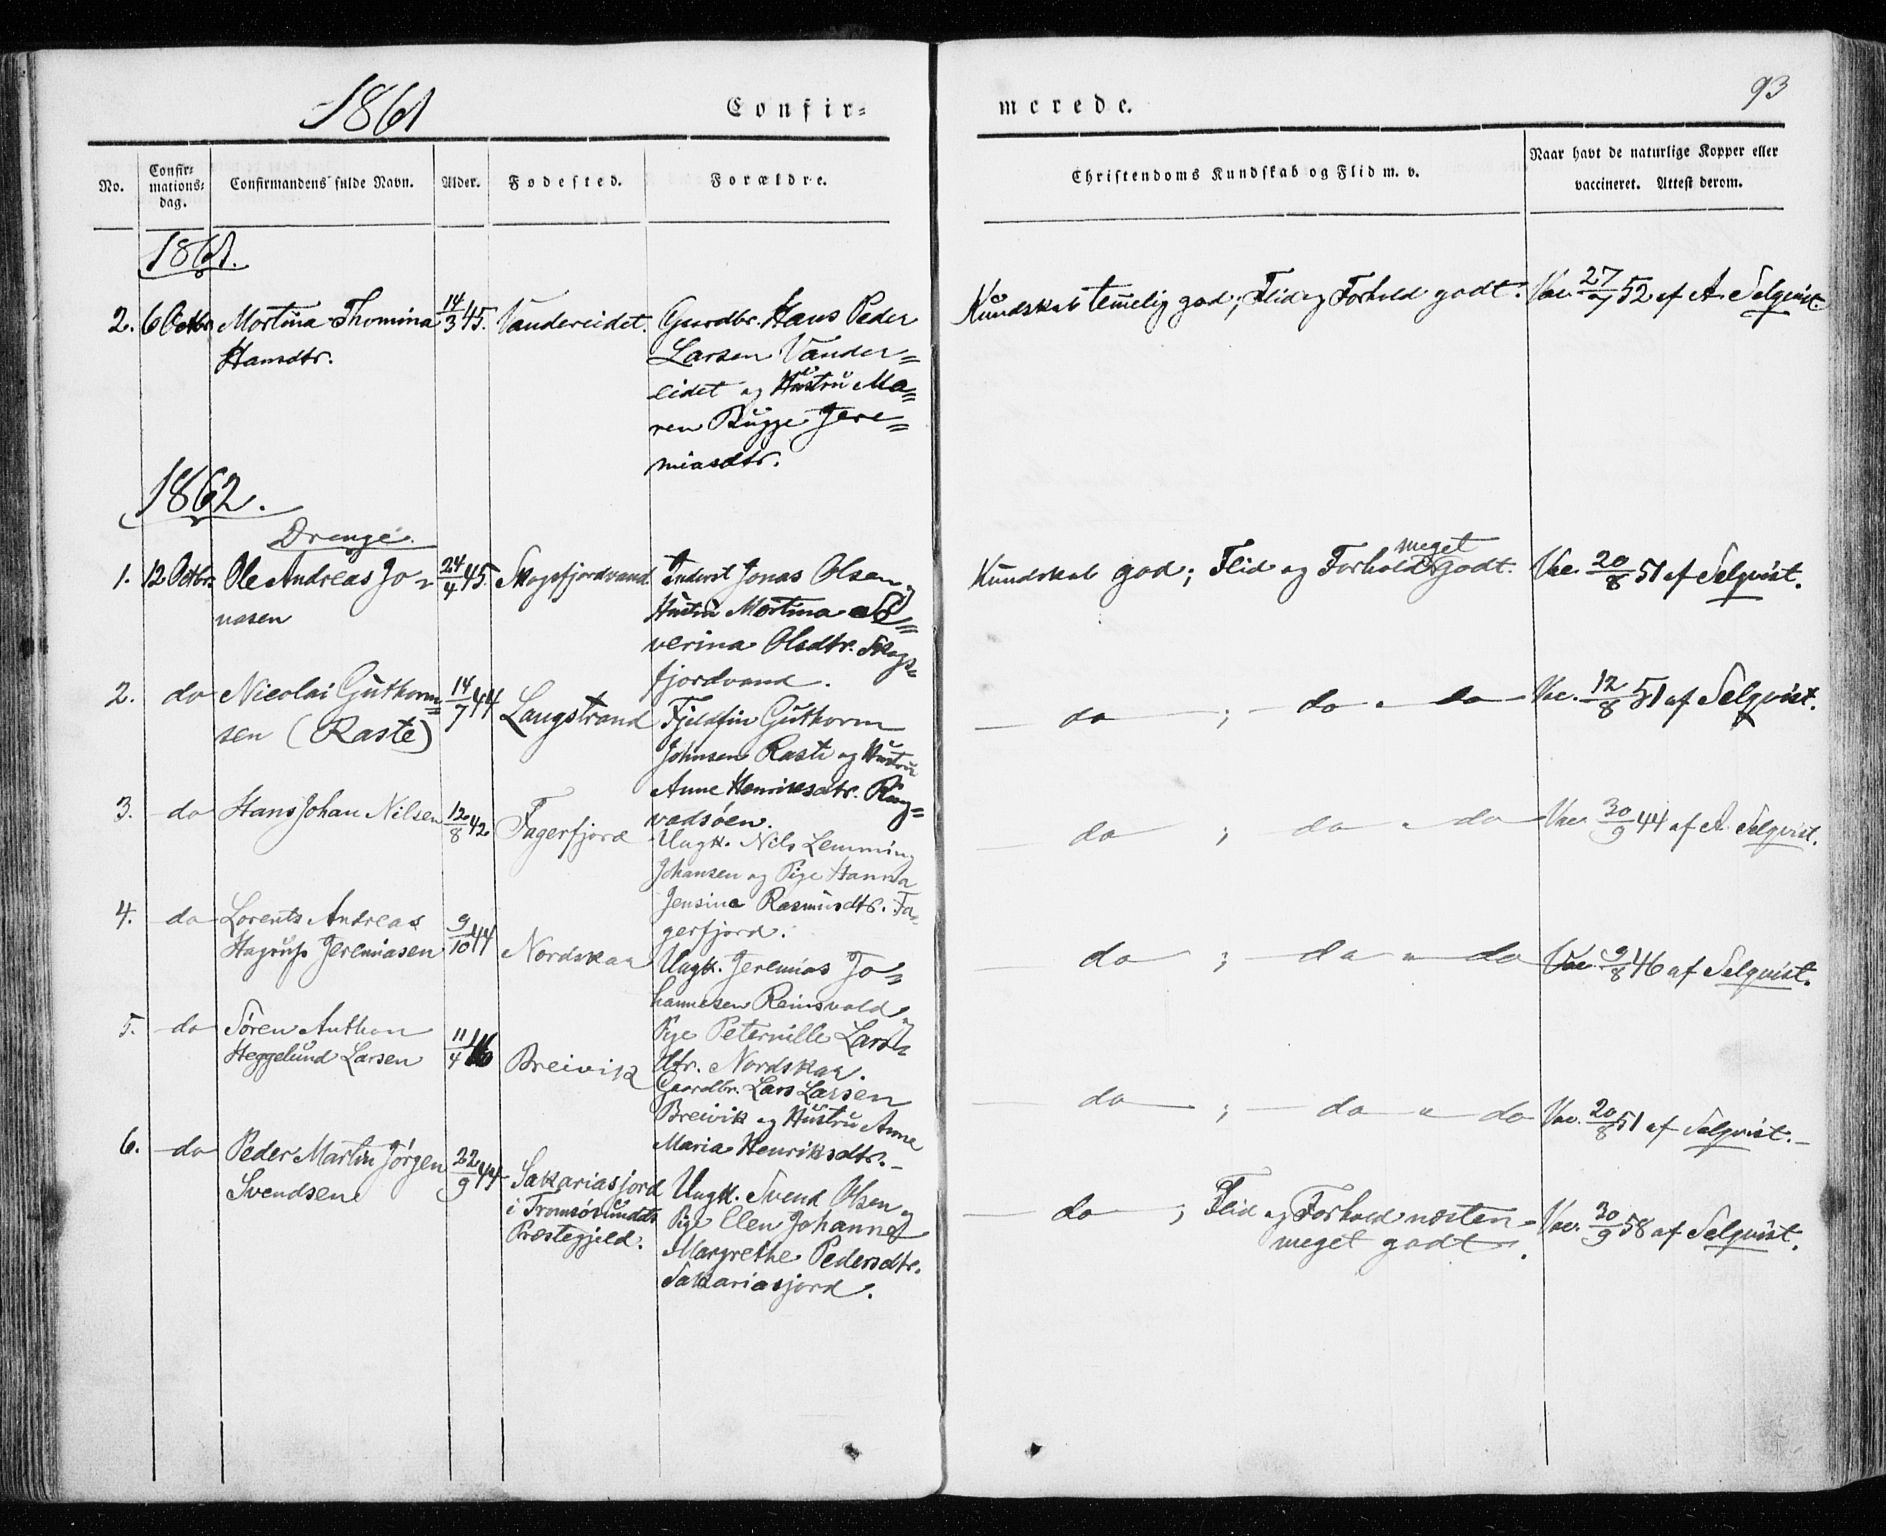 1861
Confir=
merede.
93
No.
Confir=
mations=
dag.
Confirmandens fulde Navn.
Alder.
Fødested.
Forældre.
Christendoms Kundskab og Flid m. v.
Naar havt de naturlige Kopper eller
vaccineret. Attest derom.
1861.
2. 6 Octbr Mortina Thomina 14/3 45. Vandereidet. Gaardbr. Hans Peder Kundskab temelig god; Flid og Forhold godt. Vac. 27/7 52 af A. Selqvist.
Hansdtr. Larsen Vander=
eidet og Hustru Ma=
ren Bugge Jere=
miasdtr.
1862.
Drenge.
1. 12 Octbr. Ole Andreas Jo= 24/4 45. Skogsfjordvand. Inderst Jonas Olsen og Kundskab god; Flid og Forhold meget godt. Vac. 20/8 51 af Selqvist.
nasen Hustru Mortina Se=
verina Olsdtr. Skogs=
fjordvand.
2. do Nicolai Guthorm= 14/7 44 Langstrand Fjeldfin Guthorm do ; do " do Vac. 12/8 51 af Selqvist.
sen (Raste) Johnsen Raste og Hustru
Anne Henriksdtr. Ring=
vadsøen.
3. do Hans Johan Nilsen 12/8 42 Fagerfjord Ungk. Nils Lemming do ; do " do Vac. 30/9 44 af A. Selqvist.
Johansen og Pige Hanna
Jensine Rasmusdtr. Fa=
gerfjord.
4. do Lorents Andreas 9/10 44 Nordskar Ungk. Jeremias Jo= do ; do " do Vac. 9/8 46 af Selqvist.
Hagrup Jeremiasen hannesen Reinsvold og
Pige Peternille Lars=
dtr. Nordskar.
5. do Søren Anthon 11/4 46 Breivik Gaardbr. Lars Larsen do ; do " do Vac. 20/8 51 af Selqvist.
Heggelund Larsen Breivik og Hustru Anne
Maria Henriksdtr.
6. do Peder Martin Jørgen 22/9 44 Sakariasjord Ungk. Svend Olsen og do ; Flid og Forhold næsten Vac. 30/9 58 af Selqvist.
Svendsen i Tromsøsundets Pige Elen Johanne meget godt.
Præstegjeld. Margrethe Pedersdtr.
Sakariasjord.